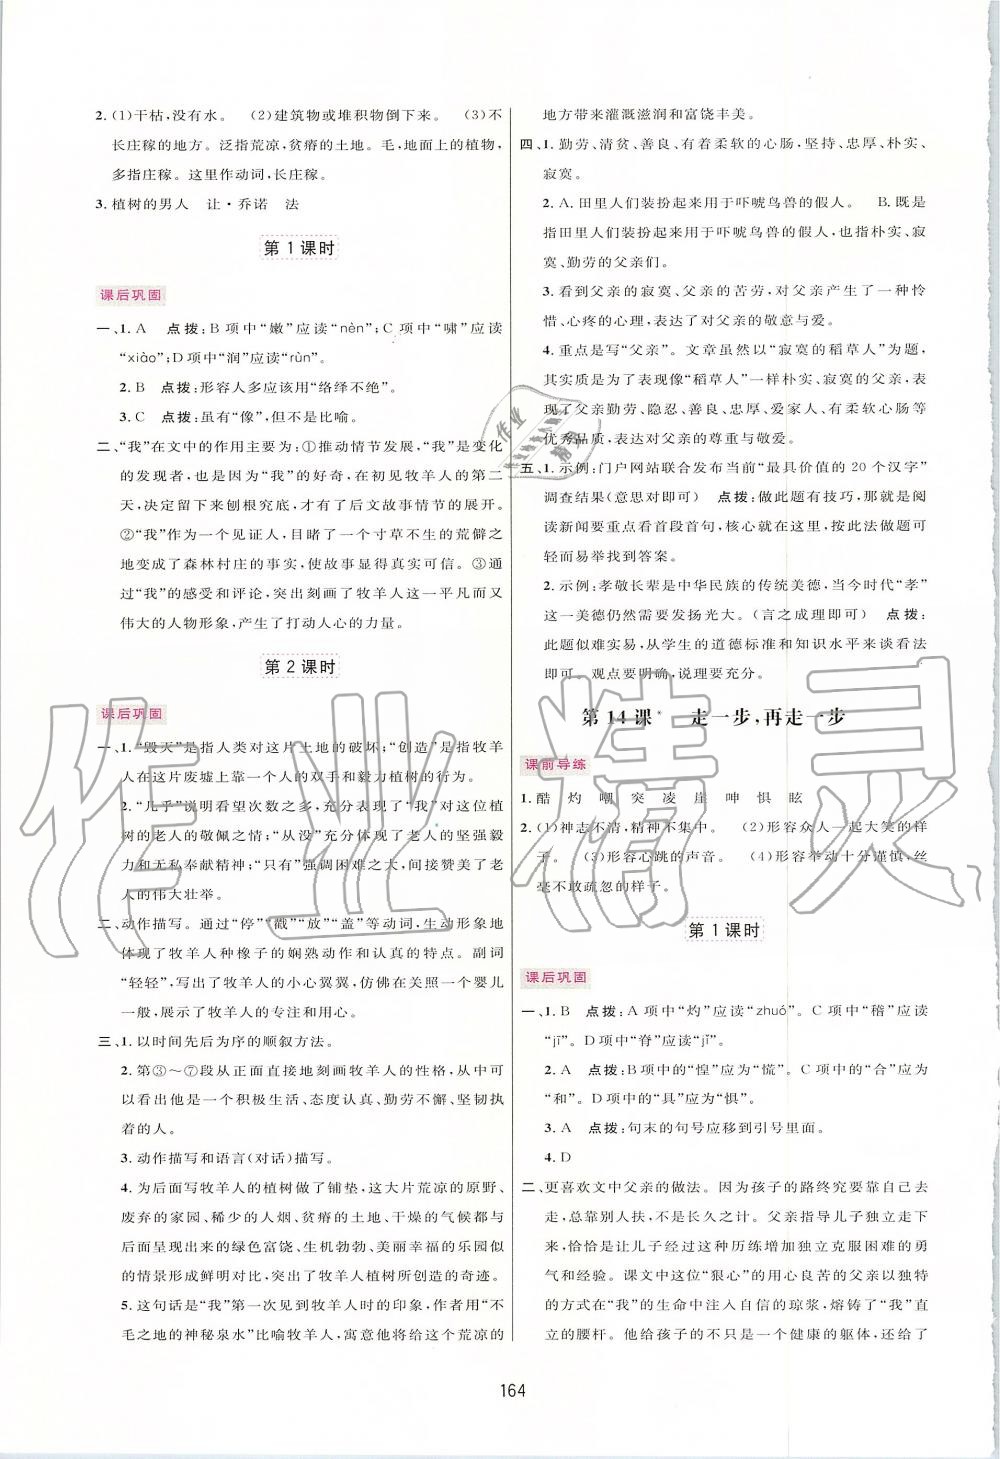 2. (1)干枯,没有水。　(2)建筑物或堆积物倒下来。　(3)不
长庄稼的地方。泛指荒凉,贫瘠的土地。毛,地面上的植物,
多指庄稼。这里作动词,长庄稼。
3. 植树的男人　让·乔诺　法
第 1 课时
课后巩固
一、1. A　点拨:B 项中“嫩”应读“nèn”;C 项中“啸”应读
“xiào”;D 项中“润”应读“rùn”。
2. B　点拨:形容人多应该用“络绎不绝”。
3. C　点拨:虽有“像”,但不是比喻。
二、“我”在文中的作用主要为:①推动情节发展,“我”是变化
的发现者,也是因为“我”的好奇,在初见牧羊人的第二
天,决定留下来刨根究底,才有了后文故事情节的展开。
②“我”作为一个见证人,目睹了一个寸草不生的荒僻之
地变成了森林村庄的事实,使故事显得真实。③通
过“我”的感受和评论,突出刻画了牧羊人这一平凡而又
伟大的人物形象,产生了打动人心的力量。
第 2 课时
课后巩固
一、1. “毁灭”是指人类对这片土地的破坏;“创造”是指牧羊
人在这片废墟上靠一个人的双手和毅力植树的行为。
2. “几乎”说明看望次数之多,充分表现了“我”对这位植
树的老人的敬佩之情;“从没”充分体现了老人的坚强毅
力和无私奉献精神;“只有”强调困难之大,间接赞美了老
人的伟大壮举。
二、动作描写。通过“停”“戳”“放”“盖”等动词,生动形象地
体现了牧羊人种橡子的娴熟动作和认真的特点。副词
“轻轻”,写出了牧羊人的小心翼翼,仿佛在呵护一个婴儿
一般,展示了牧羊人的专注和用心。
三、1. 以时间先后为序的顺叙方法。
2. 第③～⑦段从正面直接地刻画牧羊人的性格,从中可
以看出他是一个积极生活、态度认真、勤劳不懈、坚韧执
着的人。
3. 动作描写和语言(对话)描写。
4. 为后面写牧羊人的植树做了铺垫,这大片荒凉的原野、
废弃的家园、稀少的人烟、贫瘠的土地、干燥的气候都与
后面呈现出来的绿色富饶、生机勃勃、美丽幸福的乐园似
的情景形成鲜明对比,突出了牧羊人植树所创造的奇迹。
5. 这句话是“我”第一次见到牧羊人时的印象,作者用“不
毛之地的神秘泉水”比喻牧羊人,其寓意他将给这个荒凉的
地方带来灌溉滋润和富饶丰美。
四、1. 勤劳、清贫、善良、有着柔软的心肠,坚持、忠厚、朴实、
寂寞。
2. A. 田里人们装扮起来用于吓唬鸟兽的假人。　B. 既是
指田里人们装扮起来用于吓唬鸟兽的假人,也指朴实、寂
寞、勤劳的父亲们。
3. 看到父亲的寂寞、父亲的苦劳,对父亲产生了一种怜
惜、心疼的心理,表达了对父亲的敬意与爱。
4. 重点是写“父亲”。文章虽然以“寂寞的稻草人”为题,
其实质是为了表现像“稻草人”一样朴实、寂寞的父亲,表
现了父亲勤劳、隐忍、善良、忠厚、爱家人、有颗柔软心肠等
优秀品质,表达了对父亲的尊重与敬爱。
五、1. 示例:门户网站联合发布当前“最具价值的 20 个汉字”
调查结果(意思对即可)　点拨:做此题有技巧,那就是阅
读新闻要重点看首段首句,核心就在这里,按此法做题可
轻而易举找到答案。
2. 示例:孝敬长辈是中华民族的传统美德,当今时代“孝”
这一美德仍然需要发扬光大。(言之成理即可)　点拨:
此题似难实易,从学生的道德标准和知识水平来谈看法
即可。观点要明确,说理要充分。
第 14 课*　走一步,再走一步
课前导练
1. 酷　灼　嘲　突　凌　崖　呻　惧　眩
2. (1)神志不清,精神不集中。　(2)形容众人一起大笑的样
子。　(3)形容心跳的声音。　(4)形容举动十分谨慎,丝
毫不敢疏忽的样子。
第 1 课时
课后巩固
一、1. B　点拨:A 项中“灼”应读“zhuó”。C 项中“稽”应读
“jī”。D 项中“脊”应读“jǐ”。
2. A　点拨:B 项中的“惶”应为“慌”。C 项中的“合”应为
“和”。D 项中的“具”应为“惧”。
3. A　点拨:句末的句号应移到引号里面。
4. D
二、更喜欢文中父亲的做法。因为孩子的路终究要靠自己去
走,总靠别人扶,不是长久之计。父亲指导儿子独立走下
来,恰恰是让儿子通过这种历练增加独立克服困难的勇
气和经验。课文中这位“狠心”的用心良苦的父亲以独特
的方式在“我”的生命中注入自信的琼浆,熔铸了“我”直
立的腰杆。他给孩子的不只是一个健康的躯体,还给了
164
作业精灵